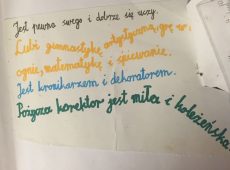 Jest pewna swego i dobrze się uczy.
Lubi gimnastykę artystyczną, grę w
ognie, matematykę i śpiewanie.
Jest kronikarzem i dekoratorem.
Pożycza korektor jest miła i koleżeńska.